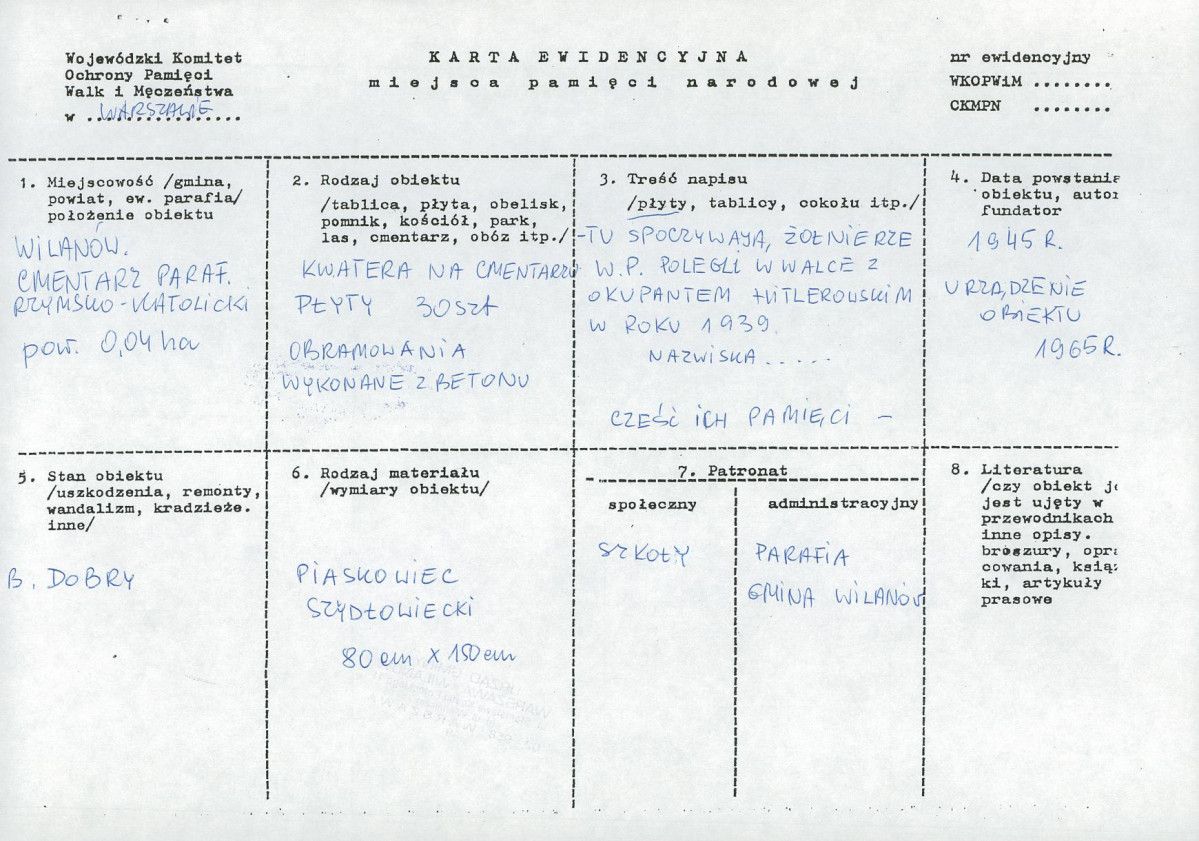 Wojewódzki Komitet
Ochrony Pamięci
Walk i Męczeństwa
w WARSZAWIE
KARTA EWIDENCYJNA
miejsca pamięci narodowej
nr ewidencyjny
WKOPWiM ........
CKMPN ........
1. Miejscowość /gmina,
powiat, ew. parafia/
położenie obiektu
WILANÓW.
CMENTARZ PARAF.
RZYMSKO-KATOLICKI
pow. 0,04 ha
2. Rodzaj obiektu
/tablica, płyta, obelisk,
pomnik, kościół, park,
las, cmentarz, obóz itp./
KWATERA NA CMENTARZU
PŁYTY 30 szt
OBRAMOWANIA
WYKONANE Z BETONU
3. Treść napisu
/płyty, tablicy, cokołu itp./
-TU SPOCZYWAJĄ, ŻOŁNIERZE
W.P. POLEGLI W WALCE Z
OKUPANTEM HITLEROWSKIM
W ROKU 1939.
NAZWISKA .....
CZEŚĆ ICH PAMIĘCI -
4. Data powstania
obiektu, autor
fundator
1945 R.
URZĄDZENIE
OBIEKTU
1965 R.
5. Stan obiektu
/uszkodzenia, remonty,
wandalizm, kradzieże.
inne/
B. DOBRY
6. Rodzaj materiału
/wymiary obiektu/
PIASKOWIEC
SZYDŁOWIECKI
80 cm X 150 cm
7. Patronat
społeczny
SZKOŁY
administracyjny
PARAFIA
GMINA WILANÓW
8. Literatura
/czy obiekt je
jest ujęty w
przewodnikach
inne opisy.
broszury, opra
cowania, książ
ki, artykuły
prasowe